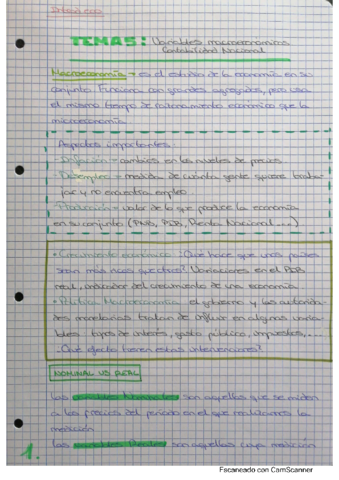 TEMA 5: Variables macroeconómicas
Contabilidad Nacional
Macroeconomía → es el estudio de la economía en su
conjunto. Funciona con grandes agregados, pero usa
el mismo tiempo de razonamiento económico que la
microeconomía.
Aspectos importantes
- Inflación → cambios en los niveles de precios
- Desempleo → medida de cuánta gente quiere traba-
jar y no encuentra empleo.
- Producción → valor de lo que produce la economía
en su conjunto (PNB, PIB, Renta Nacional...)
• Crecimiento económico: ¿Qué hace que unos países
sean más ricos que otros? Variaciones en el PIB
real, indicador del crecimiento de una economía.
• Política Macroeconómica: el gobierno y las autorida-
des monetarias tratan de influir en algunas varia-
bles: tipos de interés, gasto público, impuestos,...
¿Qué efecto tienen estas intervenciones?
NOMINAL VS REAL
Las variables Nominales son aquellas que se miden
a los precios del período en el que realizamos la
medición
Las variables Reales son aquellas cuya medición
1.
Escaneado con CamScanner